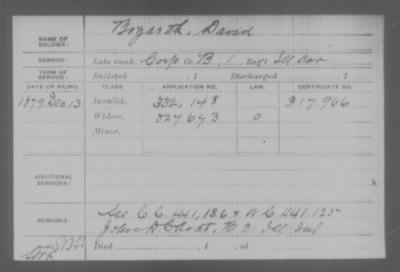 NAME OF SOLDIER: Bozarth, David
SERVICE: Late rank, Corp Co. B, 1 Reg't Ill Cav
TERM OF SERVICE: Enlisted , 1 Discharged , 1
DATE OF FILING. CLASS. APPLICATION NO. LAW. CERTIFICATE NO.
1879, Dec. 13 Invalid, 332,148 317,966
Widow, 827693 O
Minor,
ADDITIONAL SERVICES:
REMARKS: See C.C. 441,186 & W.C. 441,125
John D Choat, B 31 Ill. Inf
Died , 1 , at